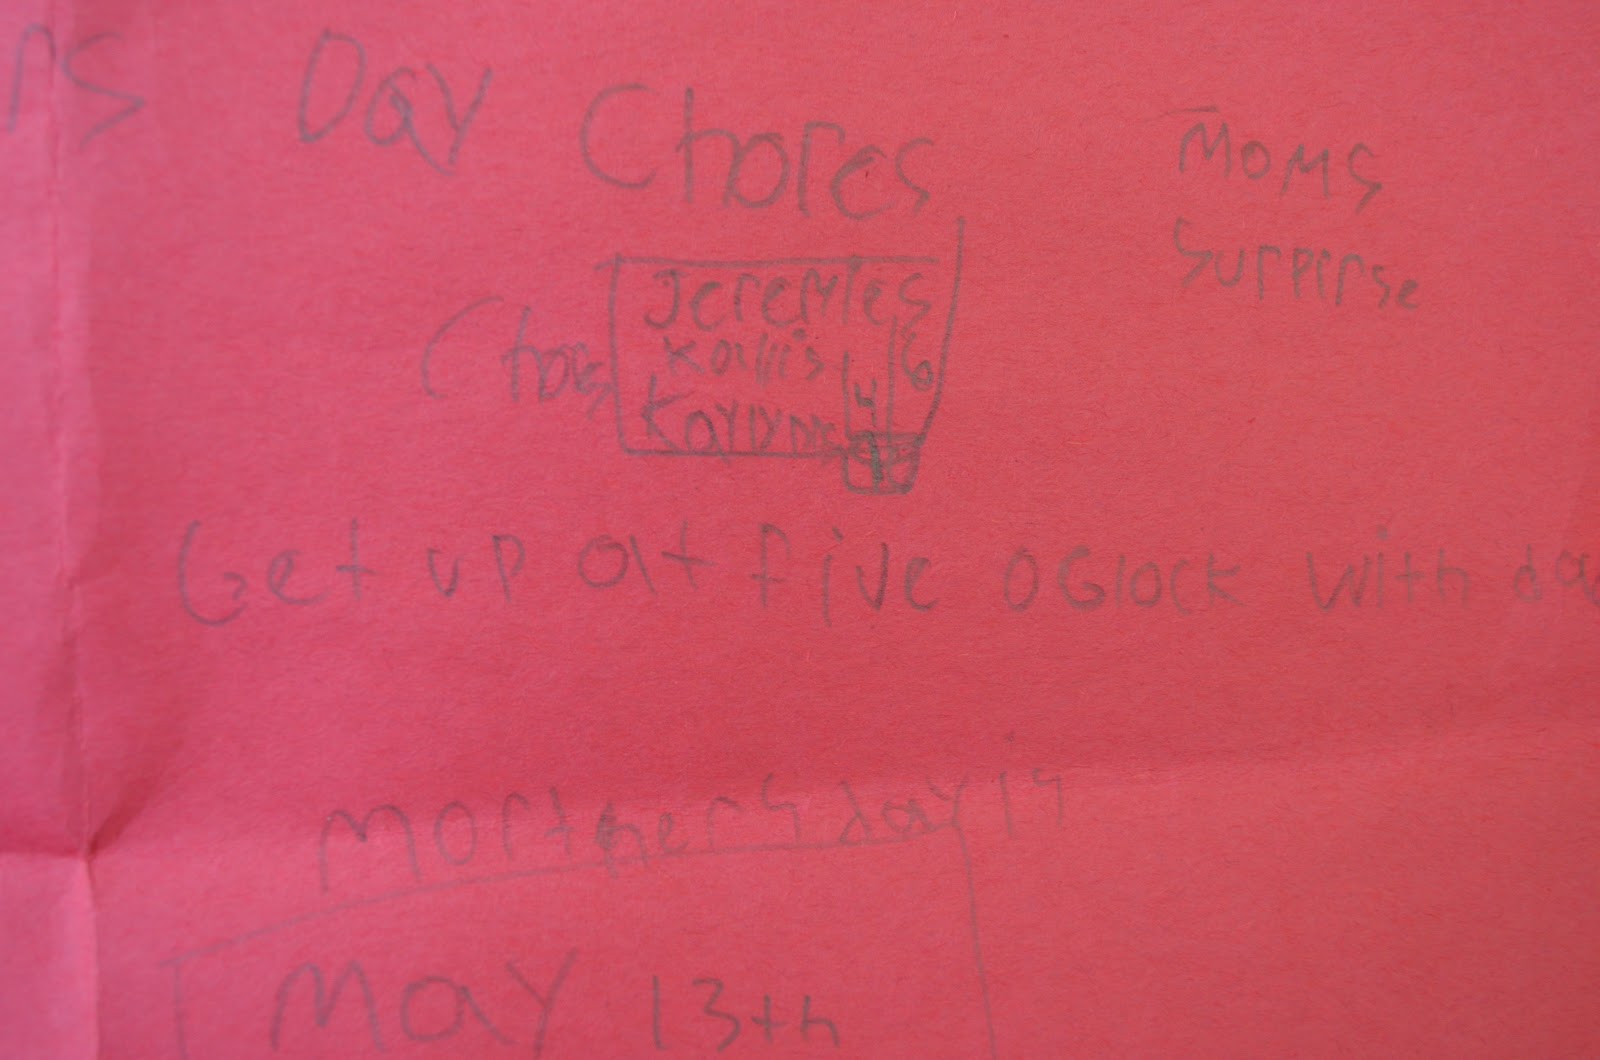 rs Day Chores
Moms
Surprirse
Chores
Jeremies 6
Kallis 4
Kaylyns
Get up at five oGlock with da
Morthers day is
May 13th